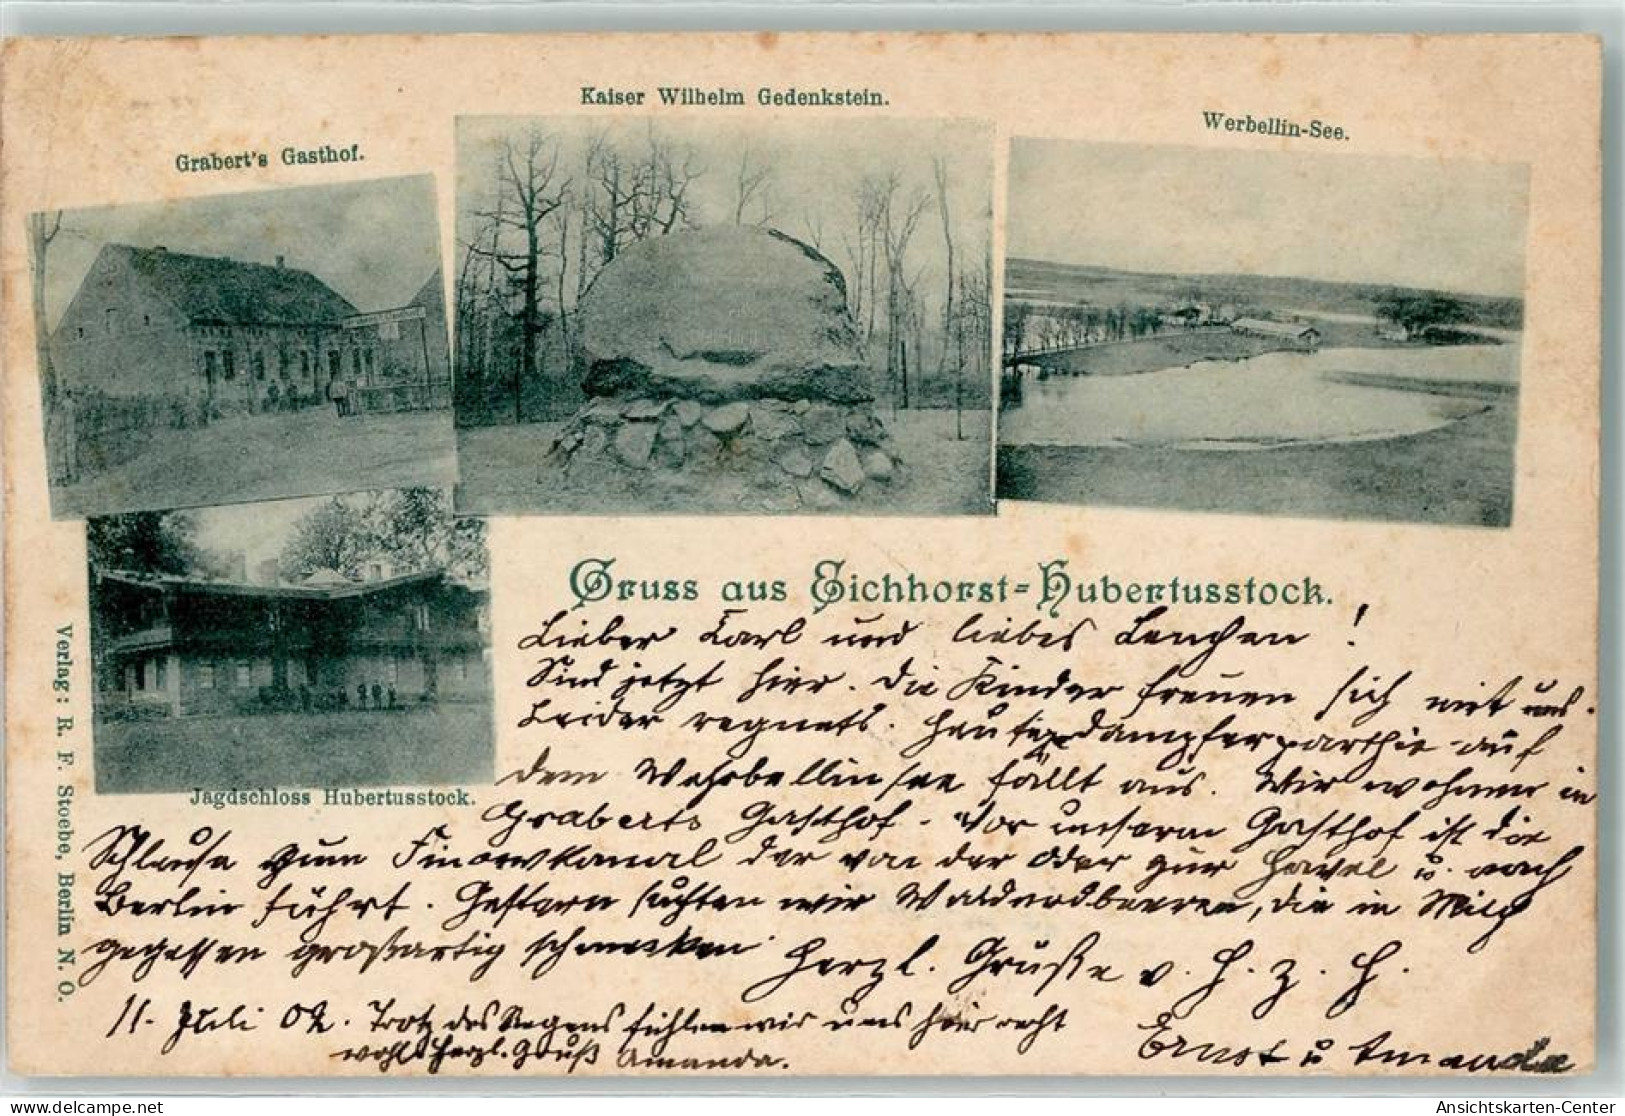 Kaiser Wilhelm Gedenkstein.
Grabert's Gasthof.
Werbellin-See.
Gruss aus Eichhorst-Hubertusstock.
Jagdschloss Hubertusstock.
Verlag: R. F. Stoebe, Berlin N. O.
Lieber Karl und liebes Lenchen!
Sind jetzt hier. Die Kinder freuen sich mit uns.
Leider regnets. Heutige Dampferparthie auf
dem Wehrbellinsee fällt aus. Wir wohnen in
Graberts Gasthof. Vor unserem Gasthof ist die
Schleuse zum Finowkanal der von der Oder zur Havel u. nach
Berlin führt. Gestern suchten wir Walderdbeeren, die in Milch
gegessen großartig schmecken. Herzl. Grüße v. H. z. H.
11. Juli 02. Trotz des Regens fühlen wir uns hier recht
wohl. Herzl. Gruß Amanda.
Ernst u Amanda
Ansichtskarten-Center